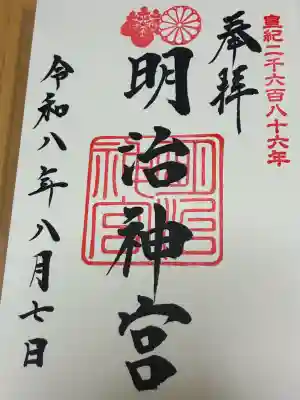 皇紀二千六百八十六年
奉拝
明治神宮
明治神宮
令和八年八月七日